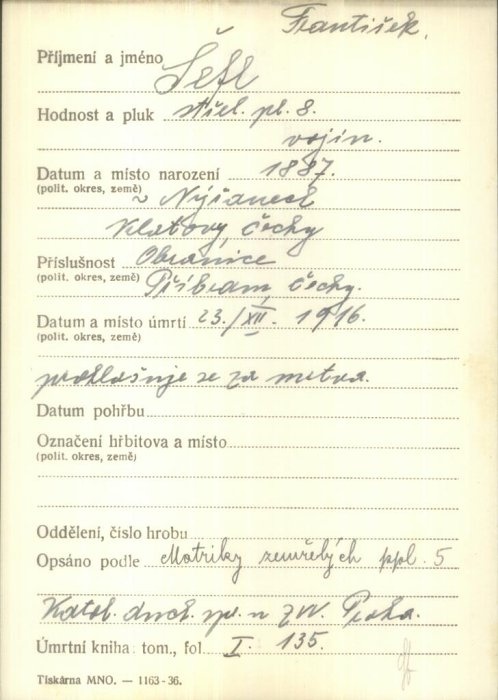 František,
Příjmení a jméno Šefl
Hodnost a pluk střel. pl. 8.
vojín.
Datum a místo narození 1887.
(polit. okres, země) v Nýřanech
Klatovy, Čechy
Příslušnost Obranice
(polit. okres, země) Příbram, Čechy.
Datum a místo úmrtí 23./XII. 1916.
(polit. okres, země)
prohlašuje se za mrtva.
Datum pohřbu
Označení hřbitova a místo
(polit. okres, země)
Oddělení, číslo hrobu
Opsáno podle Matriky zemřelých ppl. 5
Katol. duch. spr. n ZVV. Praha.
Úmrtní kniha: tom., fol. I. 135.
Tiskárna MNO. — 1163-36.